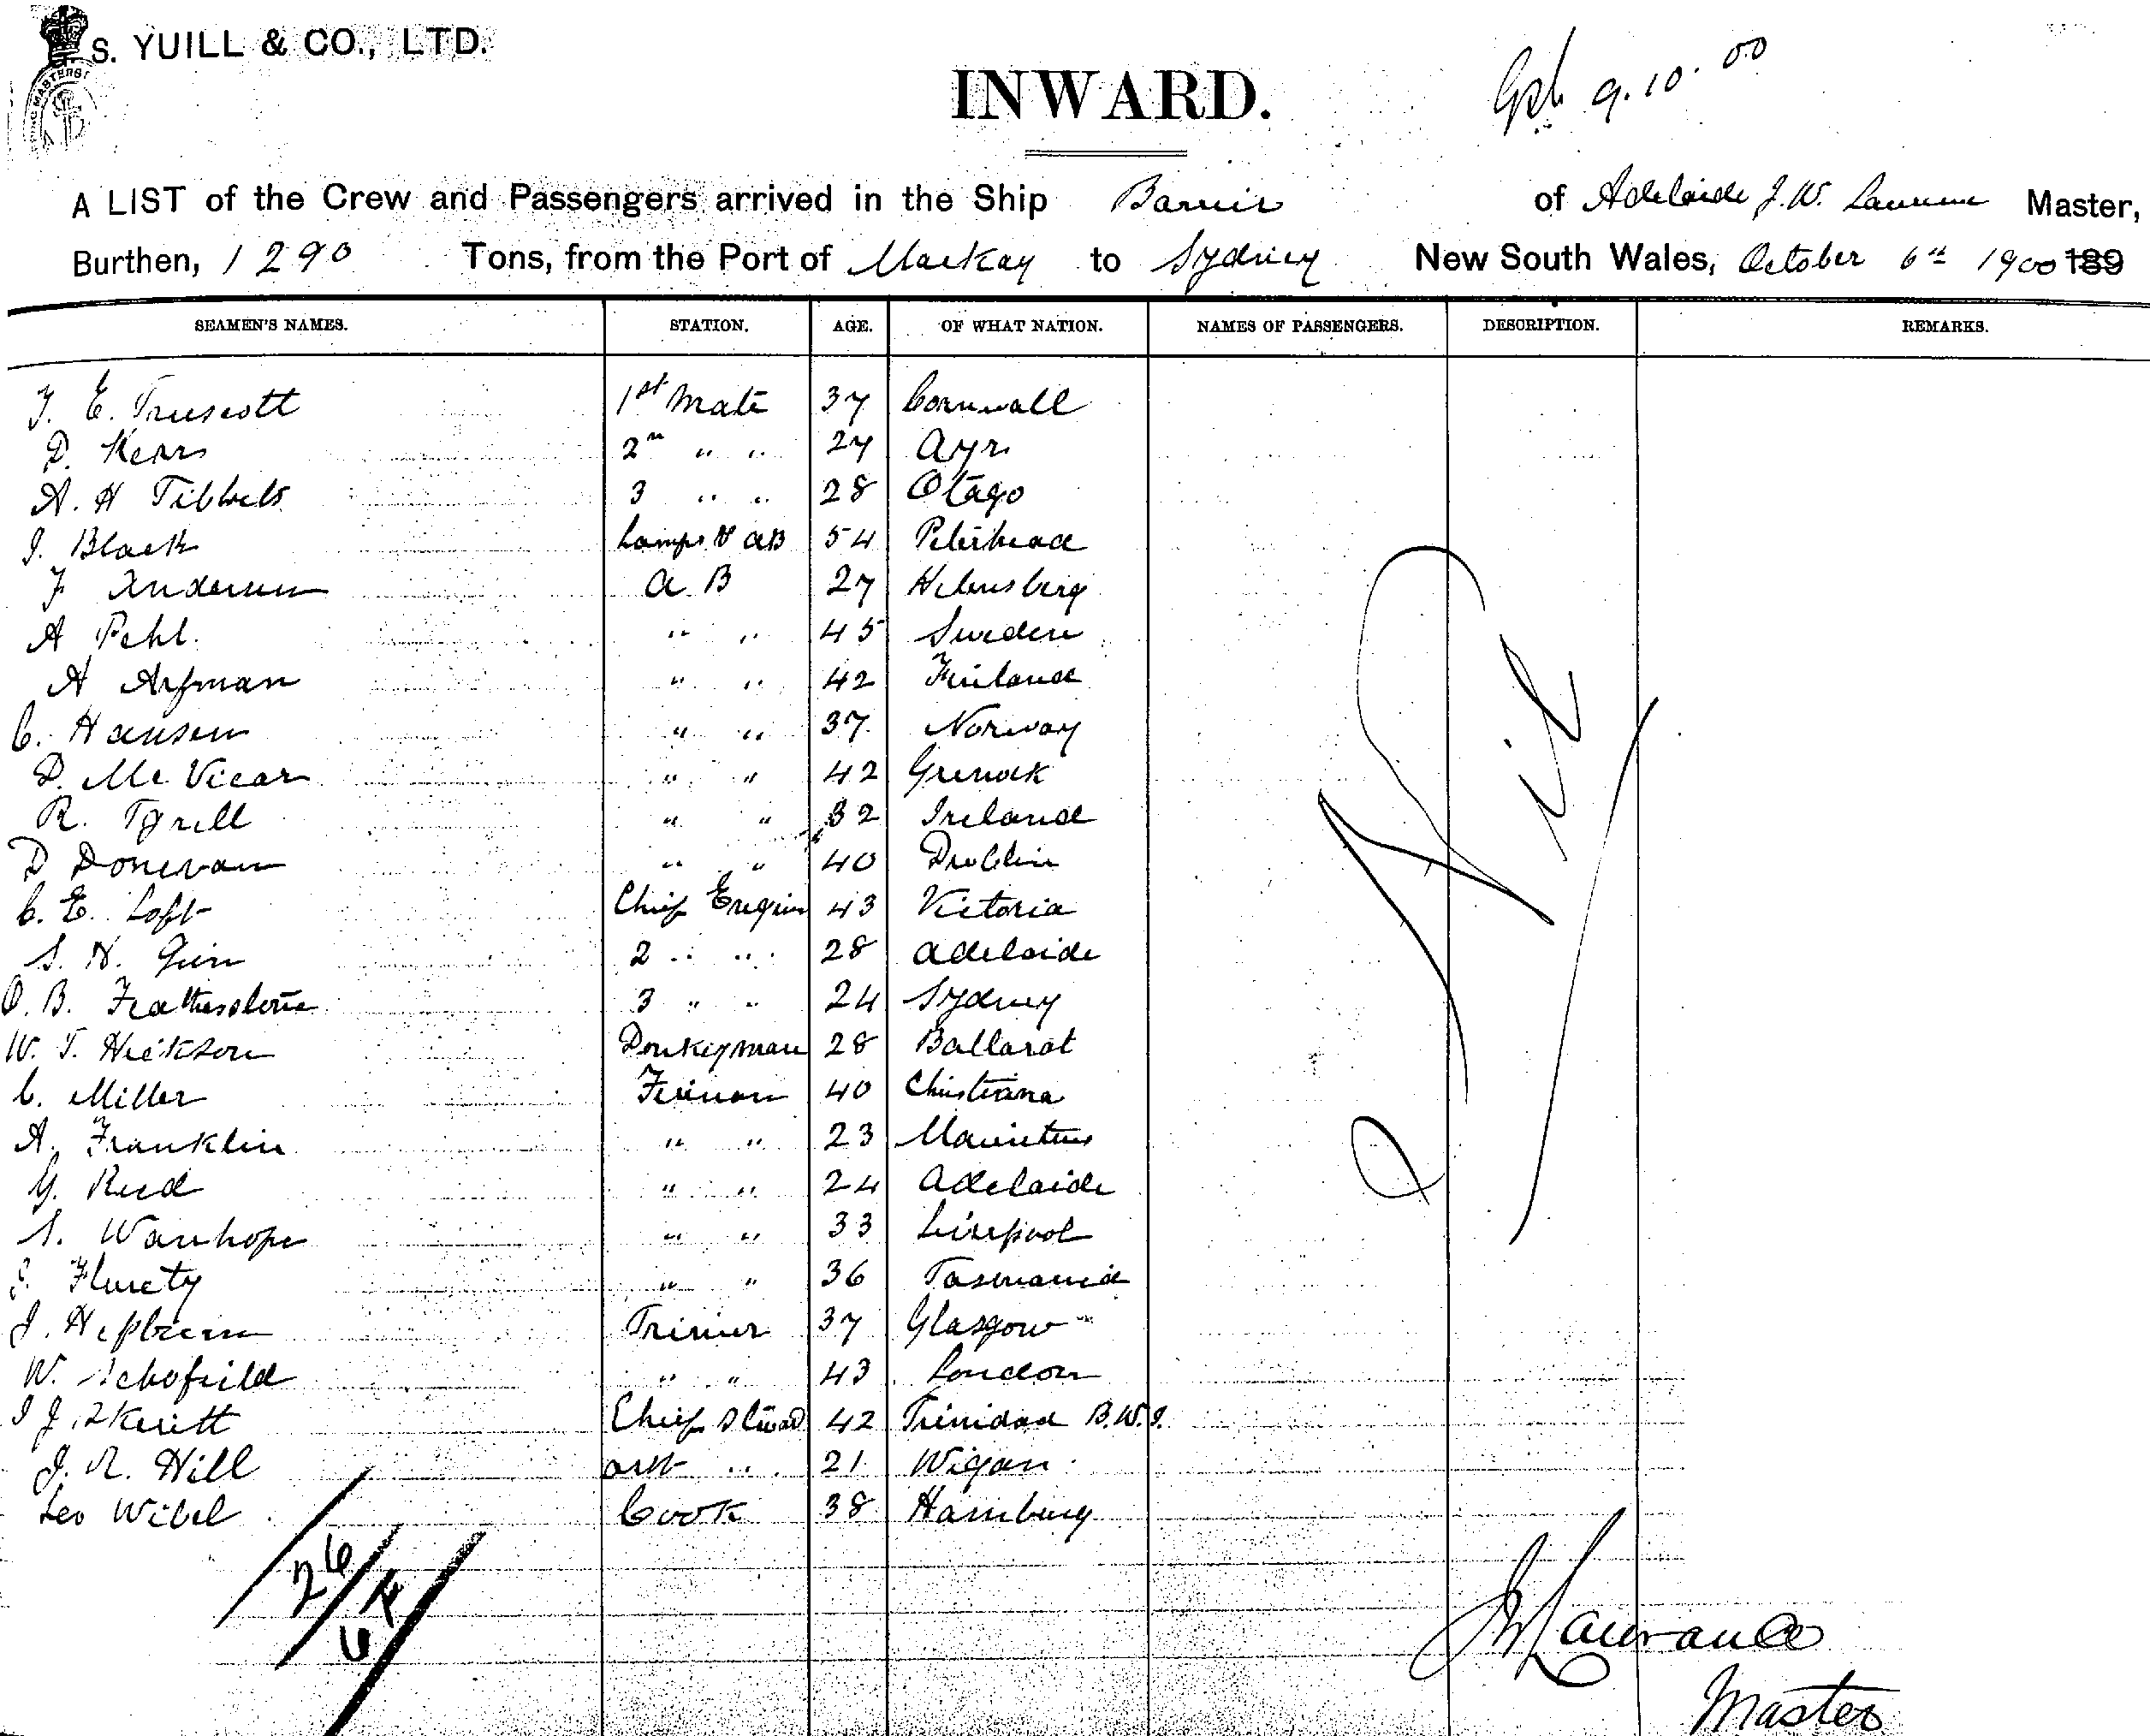 S. YUILL & CO., LTD.
INWARD.
9.10.00
A LIST of the Crew and Passengers arrived in the Ship Barrier of Adelaide J. W. Laurance Master,
Burthen, 1290 Tons, from the Port of Mackay to Sydney New South Wales, October 6th 1900 189
SEAMEN'S NAMES. STATION. AGE. OF WHAT NATION. NAMES OF PASSENGERS. DESCRIPTION. REMARKS.
E. Truscott 1st Mate 37 Cornwall
D. Kerr 2n " " 27 Ayr
A. H Tibbets 3 " " 28 Otago
J. Black Lamps & AB 54 Peterhead
F Andersen A B 27 Helensberg
A Pehl. " " 45 Sweden
A Arfman " " 42 Finland
C. Hansen " " 37 Norway
D. Mc Vicar " " 42 Grenock
R. Tyrell " " 32 Ireland
D Donevan " " 40 Dublin
C. E. Loft Chief Engin 43 Victoria
S. H. 2 " " 28 Adelaide
O. B. Featherstone 3 " " 24 Sydney
W. T. Hickson Donkeyman 28 Ballarat
C. Miller Fireman 40 Christiana
A. Franklin " " 23 Mauritius
G. Reid " " 24 Adelaide
S. Wanhope " " 33 Liverpool
Flurety " " 36 Tasmania
J. Hepburn Trimer 37 Glasgow
W. Schofield " " 43 London
J J Skeritt Chief Stwad 42 Trinidad B.W.I.
J. R. Hill asst " 21 Wigan
Leo Wibel Cook 38 Hamburg
Nil
26
JW Laurance
Master